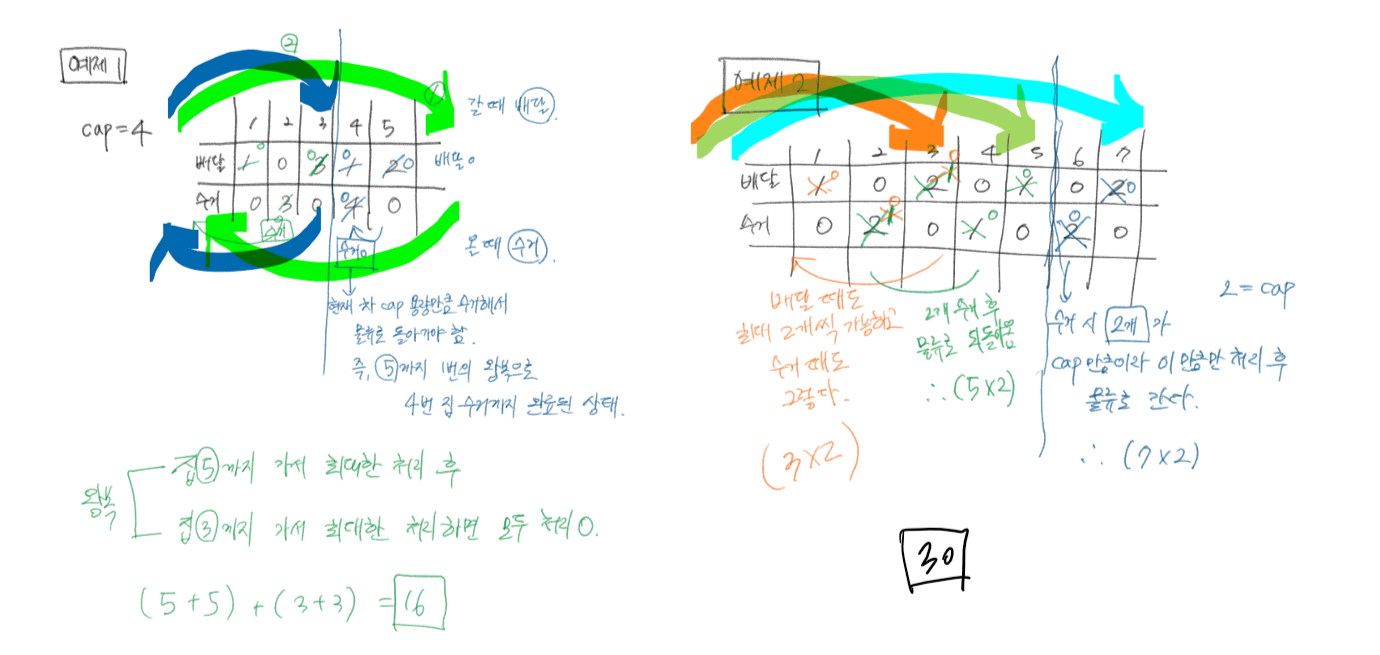 예제 1
②
cap=4
갈때 배달.
1 2 3 4 5
배달 1 0 0 3 0 1 2 0 배달 0
수거 0 3 0 0 4 0
0
수거
수거
온때 수거.
현재 차 cap 용량만큼 수거해서
물류로 돌아가야 함.
즉, ⑤까지 1번의 왕복으로
4번 집 수거까지 완료된 상태.
왕복
집⑤까지 가서 최대한 처리 후
집③까지 가서 최대한 처리하면 모두 처리 0.
(5+5) + (3+3) = 16
예제 2
1 2 3 4 5 6 7
배달 1 0 0 2 1 0 0 1 0 0 2 0
수거 0 2 1 0 0 1 0 0 2 0 0
2 = cap
배달 때도
최대 2개씩 가능하고
수거 때도
그렇다.
(3×2)
2개 수거 후
물류로 되돌아옴
∴ (5×2)
수거 시 2개가
cap 만큼이라 이 만큼만 처리 후
물류로 간다.
∴ (7×2)
30